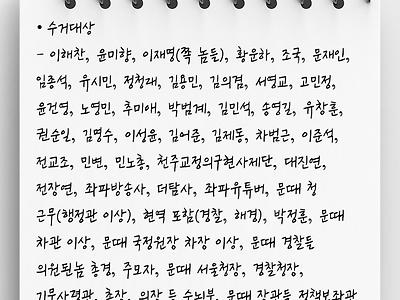 • 수거대상
- 이해찬, 윤미향, 이재명(쪽 놈들), 황운하, 조국, 문재인,
임종석, 유시민, 정청래, 김용민, 김의겸, 서영교, 고민정,
윤건영, 노영민, 추미애, 박범계, 김민석, 송영길, 유창훈,
권순일, 김명수, 이성윤, 김어준, 김제동, 차범근, 이준석,
전교조, 민변, 민노총, 천주교정의구현사제단, 대진연,
전장연, 좌파방송사, 더탐사, 좌파유튜버, 문때 청
근무(행정관 이상), 현역 포함(경찰, 해경), 박정훈, 문때
차관 이상, 문때 국정원장 차장 이상, 문때 경찰들
의원된놈 총경, 주모자, 문때 서울청장, 경찰청장,
기무사령관, 총장, 의장 등 수뇌부, 문때 장관들 정책보좌관